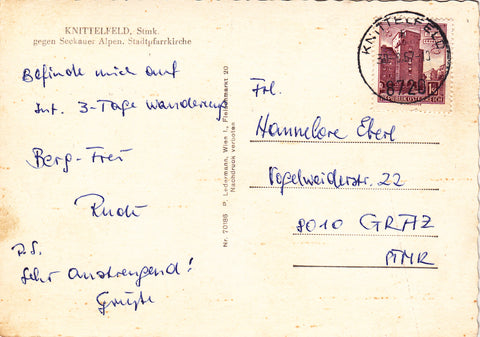 KNITTELFELD, Stmk.
gegen Seckauer Alpen. Stadtpfarrkirche
Befinde mich auf
Int. 3-Tage Wanderung
Berg-Frei
Rudi
P.S.
Sehr anstrengend!
Grüße
Nr. 70186 P. Ledermann, Wien I., Fleischmarkt 20
Nachdruck verboten
KNITTELFELD
8720
REPUBLIK ÖSTERREICH
Frl.
Hannelore Eberl
Vogelweiderstr. 22
8010 GRAZ
STMK